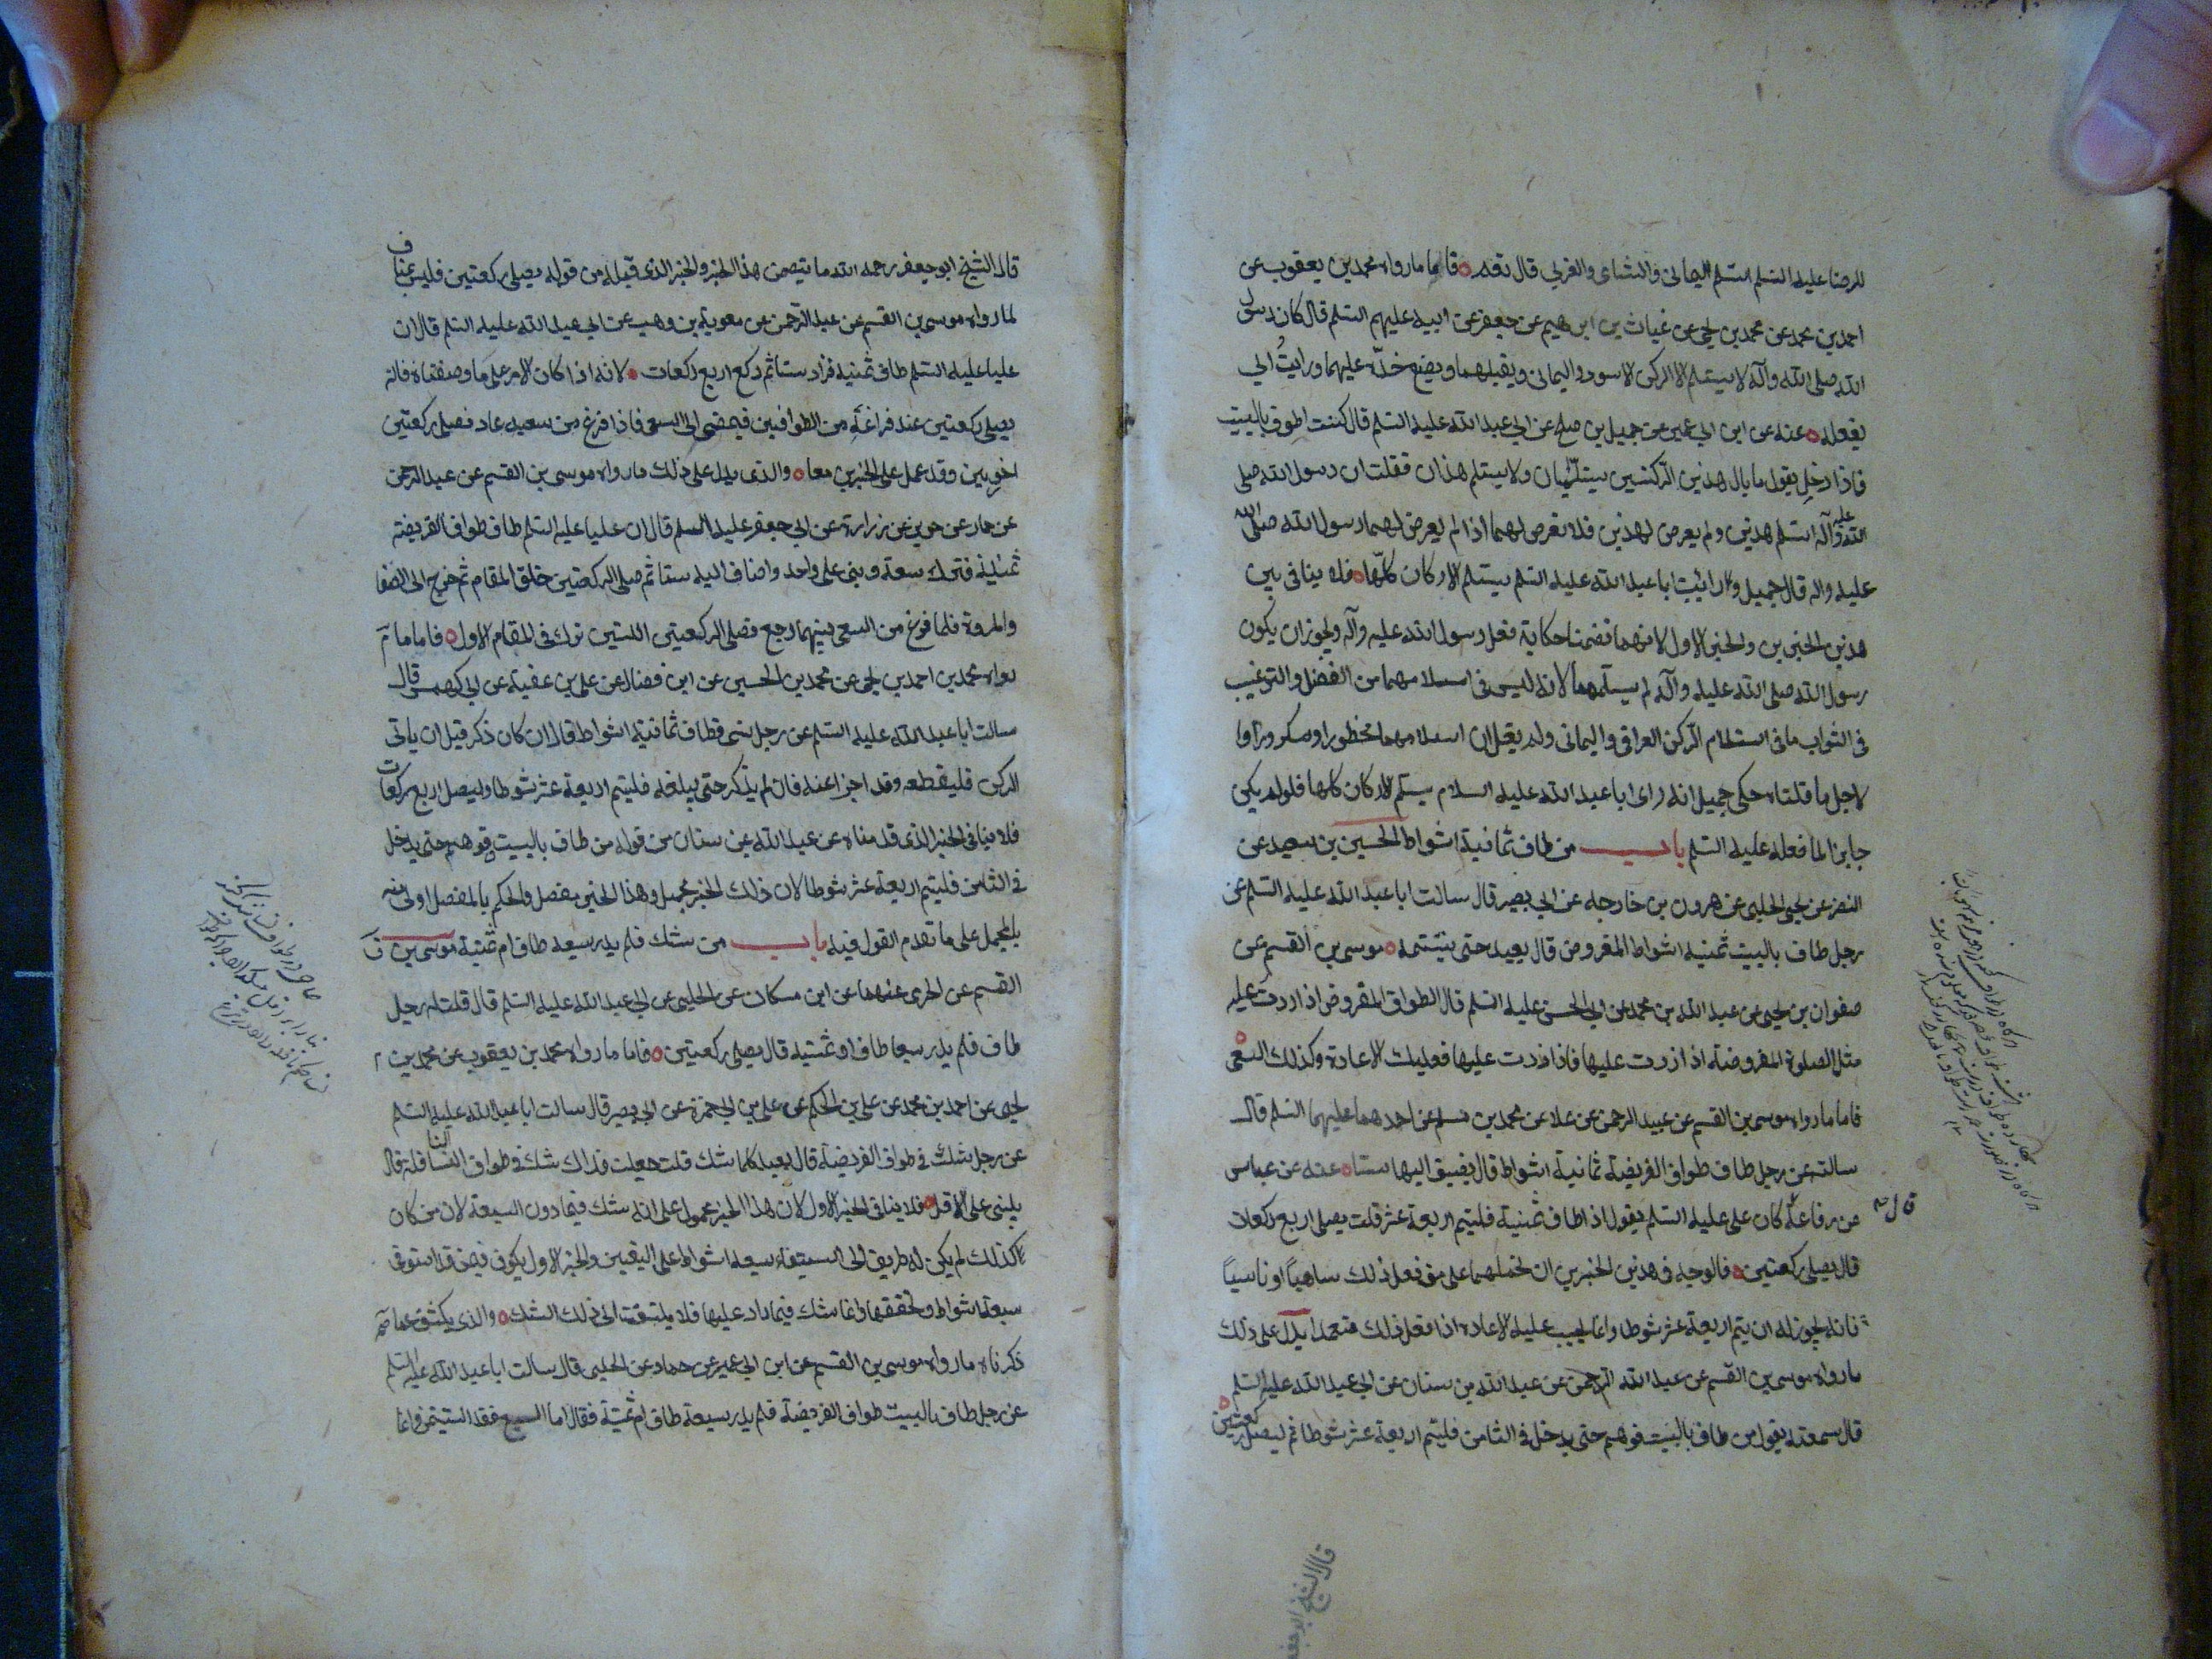 للرضا عليه السلم استلم اليماني والشامي والغربي قال نعم فاما ما رواه محمد بن يعقوب عن
احمد بن محمد عن محمد بن يحيى عن غياث بن ابرهيم عن جعفر عن ابيه عليهم السلم قال كان رسول
الله صلى الله وآله لا يستلم الا الركن الاسود واليماني ويقبلهما ويضع خدّه عليهما ورايت ابي
يفعله عنه عن ابن ابي عمير عن جميل بن صلح عن ابي عبد الله عليه السلم قال كنت اطوف بالبيت
فاذا رجل يقول ما بال هذين الركنين يستلمان ولا يستلم هذان فقلت ان رسول الله صلى
الله عليه وآله استلم هذين ولم يعرض لهذين فلا تعرض لهما اذا لم يعرض لهما رسول الله صلى الله
عليه واله قال جميل ورايت ابا عبد الله عليه السلم يستلم الاركان كلّها فلا ينافي بين
هذين الخبرين والخبر الاول لانهما تضمنا حكاية فعل رسول الله عليه وآله ويجوز ان يكون
رسول الله صلى الله عليه وآله لم يستلمهما لانه ليس في استلامهما من الفضل والترغيب
في الثواب ما في استلام الركن العراقي واليماني ولم يقل ان استلامهما محظور او مكروه
لاجل ما قلناه حكى جميل انه راى ابا عبد الله عليه السلام يستلم الاركان كلها فلو لم يكن
جايزا لما فعله عليه السلم باب من طاف ثمانية اشواط الحسين بن سعيد عن
النضر عن يحيى الحلبي عن هرون بن خارجه عن ابي بصير قال سالت ابا عبد الله عليه السلم عن
رجل طاف بالبيت ثمنية اشواط المفروض قال يعيد حتى يثبته موسى بن القسم عن
صفوان بن يحيى عن عبد الله بن محمد عن ابي الحسن عليه السلم قال الطواف المفروض اذا زدت عليه
مثل الصلوة المفروضة اذا زدت عليها فاذا زدت عليها فعليك الاعادة وكذلك السعي
فاما ما رواه موسى بن القسم عن عبد الرحمن عن علا عن محمد بن مسلم عن احدهما عليهما السلم قال
سالته عن رجل طاف طواف الفريضة ثمانية اشواط قال يضيف اليها ستا عنه عن عباس
عن رفاعة قال كان علي عليه السلم يقول اذا طاف ثمنية فليتم اربعة عشر قلت يصلي اربع ركعات
قال يصلي ركعتين فالوجه في هذين الخبرين ان نحملهما على من فعل ذلك ساهياً او ناسياً
فانه يجوز له ان يتم اربعة عشر شوطا وانما يجب عليه الاعادة اذا فعل ذلك متعمدا يدل على ذلك
ما رواه موسى بن القسم عن عبد الرحمن عن عبد الله بن سنان عن ابي عبد الله عليه السلم
قال سمعته يقول من طاف بالبيت فوهم حتى يدخل في الثامن فليتم اربعة عشر شوطا ثم ليصل ركعتين
قال الشيخ ابو جعفر
قال الشيخ ابو جعفر رحمه الله ما يتضمن هذا الخبر والخبر الذي قبله من قوله يصلي ركعتين فليس بمناف
لما رواه موسى بن القسم عن عبد الرحمن عن معوية بن وهب عن ابي عبد الله عليه السلم قال ان
عليا عليه السلم طاف ثمنية فزاد ستا ثم ركع اربع ركعات لانه اذا كان الامر على ما وصفناه فانه
يصلي ركعتين عند فراغه من الطوافين فيمضى الى السعي فاذا فرغ من سعيه عاد فصلى ركعتين
اخريين وقد عمل على الخبرين معا والذي يدل على ذلك ما رواه موسى بن القسم عن عبد الرحمن
عن حماد عن حريز عن زرارة عن ابي جعفر عليه السلم قال ان عليا عليه السلم طاف طواف الفريضة
ثمنية فترك سبعة وبنى على واحد واضاف اليه ستا ثم صلى الركعتين خلف المقام ثم خرج الى الصفا
والمروة فلما فرغ من السعي بينهما رجع فصلى الركعتين اللتين ترك في المقام الاول فاما ما
رواه محمد بن احمد بن يحيى عن محمد بن الحسين عن ابن فضال عن علي بن عقبة عن ابي كهمس قال
سالت ابا عبد الله عليه السلم عن رجل نسي فطاف ثمانية اشواط قال ان كان ذكر قبل ان ياتي
الركن فليقطعه وقد اجزا عنه فان لم يذكر حتى يبلغه فليتم اربعة عشر شوطا وليصل اربع ركعات
فلا ينافي الخبر الذي قدمناه عن عبد الله بن سنان من قوله من طاف بالبيت فوهم حتى يدخل
في الثامن فليتم اربعة عشر شوطا لان ذلك الخبر مجمل وهذا الخبر مفصل والحكم بالمفصل اولى منه
بالمجمل على ما تقدم القول فيه باب من شك فلم يدر سبعة طاف ام ثمنية موسى بن
القسم عن الجرمي عنهما عن ابن مسكان عن الحلبي عن ابي عبد الله عليه السلم قال قلت له رجل
طاف فلم يدر سبعا طاف او ثمنية قال يصلي ركعتين فاما ما رواه محمد بن يعقوب عن محمد بن
يحيى عن احمد بن محمد عن علي بن الحكم عن علي بن ابي حمزة عن ابي بصير قال سالت ابا عبد الله عليه السلم
عن رجل شك في طواف الفريضة قال يعيد كلما شك قلت جعلت فداك شك في طواف النافلة قال
يبني على الاقل فلا ينافي الخبر الاول لان هذا الخبر محمول على انه شك فيما دون السبعة لان من كان
كذلك لم يكن له طريق الى استيفاء سبعة اشواط على اليقين والخبر الاول يكون فيمن قد استوفى
سبعة اشواط وتحققها وانما شك فيما زاد عليها فلا يلتفت الى ذلك الشك والذي يكشف عما
ذكرناه ما رواه موسى بن القسم عن ابن ابي عمير عن حماد عن الحلبي قال سالت ابا عبد الله عليه السلم
عن رجل طاف بالبيت طواف الفريضة فلم يدر سبعة طاف ام ثمنية فقال اما السبع فقد استيقن وانما